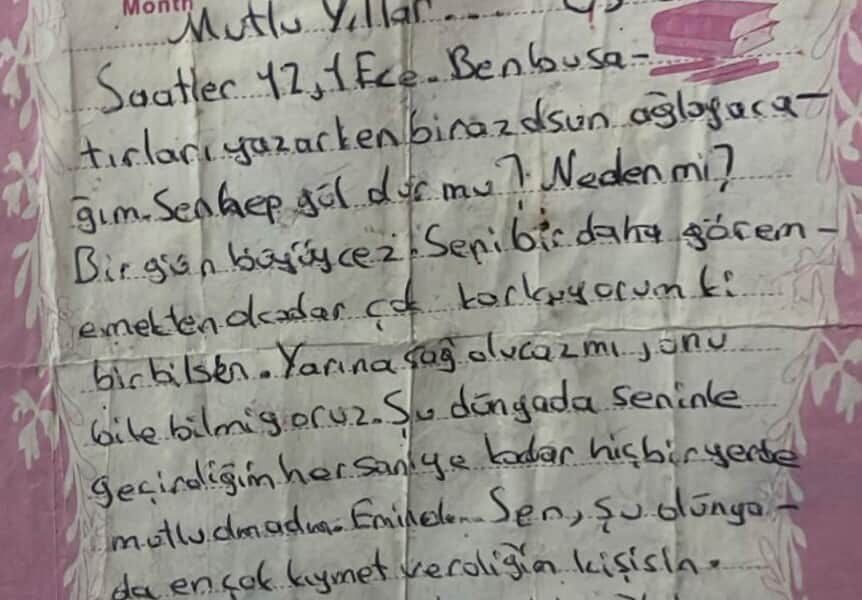 Month
Mutlu Yıllar....
Saatler 12,1 Ece. Ben bu sa-
tırları yazarken biraz dsun ağlayaca-
ğım. Sen hep gül dur mu? Neden mi?
Bir gün büyüycez. Seni bir daha görem-
emekten okadar çok korkuyorum ki
bir bilsen. Yarına sağ olucazmı, onu
bile bilmiyoruz. Şu dünyada seninle
geçirdiğim her saniye kadar hiçbir yerde
mutlu olmadım. Eminol. Sen, şu dünya-
da en çok kıymet verdiğim kişisin.